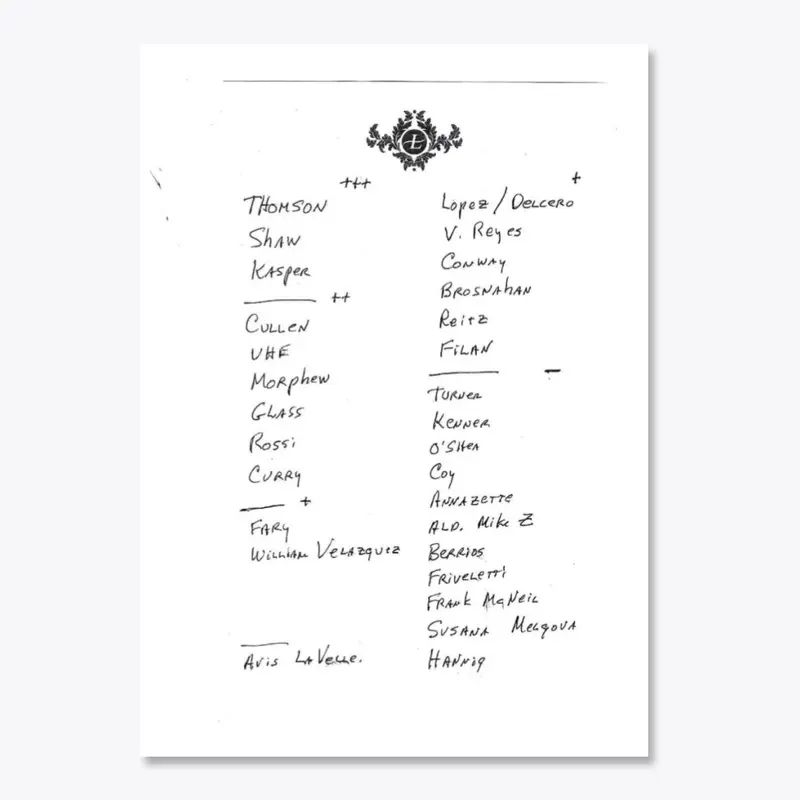 Ł
+++
THOMSON
SHAW
KASPER
++
CULLEN
UHE
MORPHEW
GLASS
ROSSI
CURRY
+
FARY
WILLIAM VELAZQUEZ
AVIS LAVELLE.
+
LOPEZ / DELCERO
V. REYES
CONWAY
BROSNAHAN
REITZ
FILAN
-
TURNER
KENNER
O'SHEA
COY
ANNAZETTE
ALD. MIKE Z
BERRIOS
FRIVELETTI
FRANK McNEIL
SUSANA
HANNIG